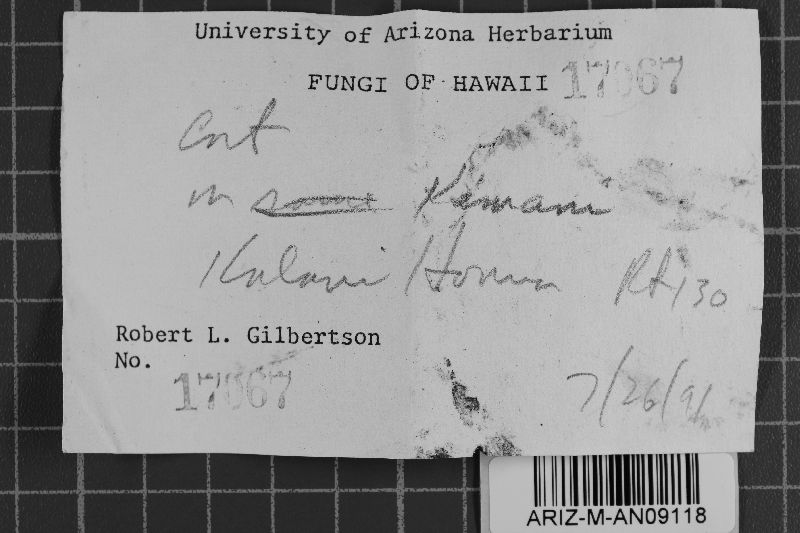 University of Arizona Herbarium
FUNGI OF HAWAII 17067
Cort
on some Kimani
Kalani Honua Rt 130
Robert L. Gilbertson
No.
17067
7/26/91
ARIZ-M-AN09118